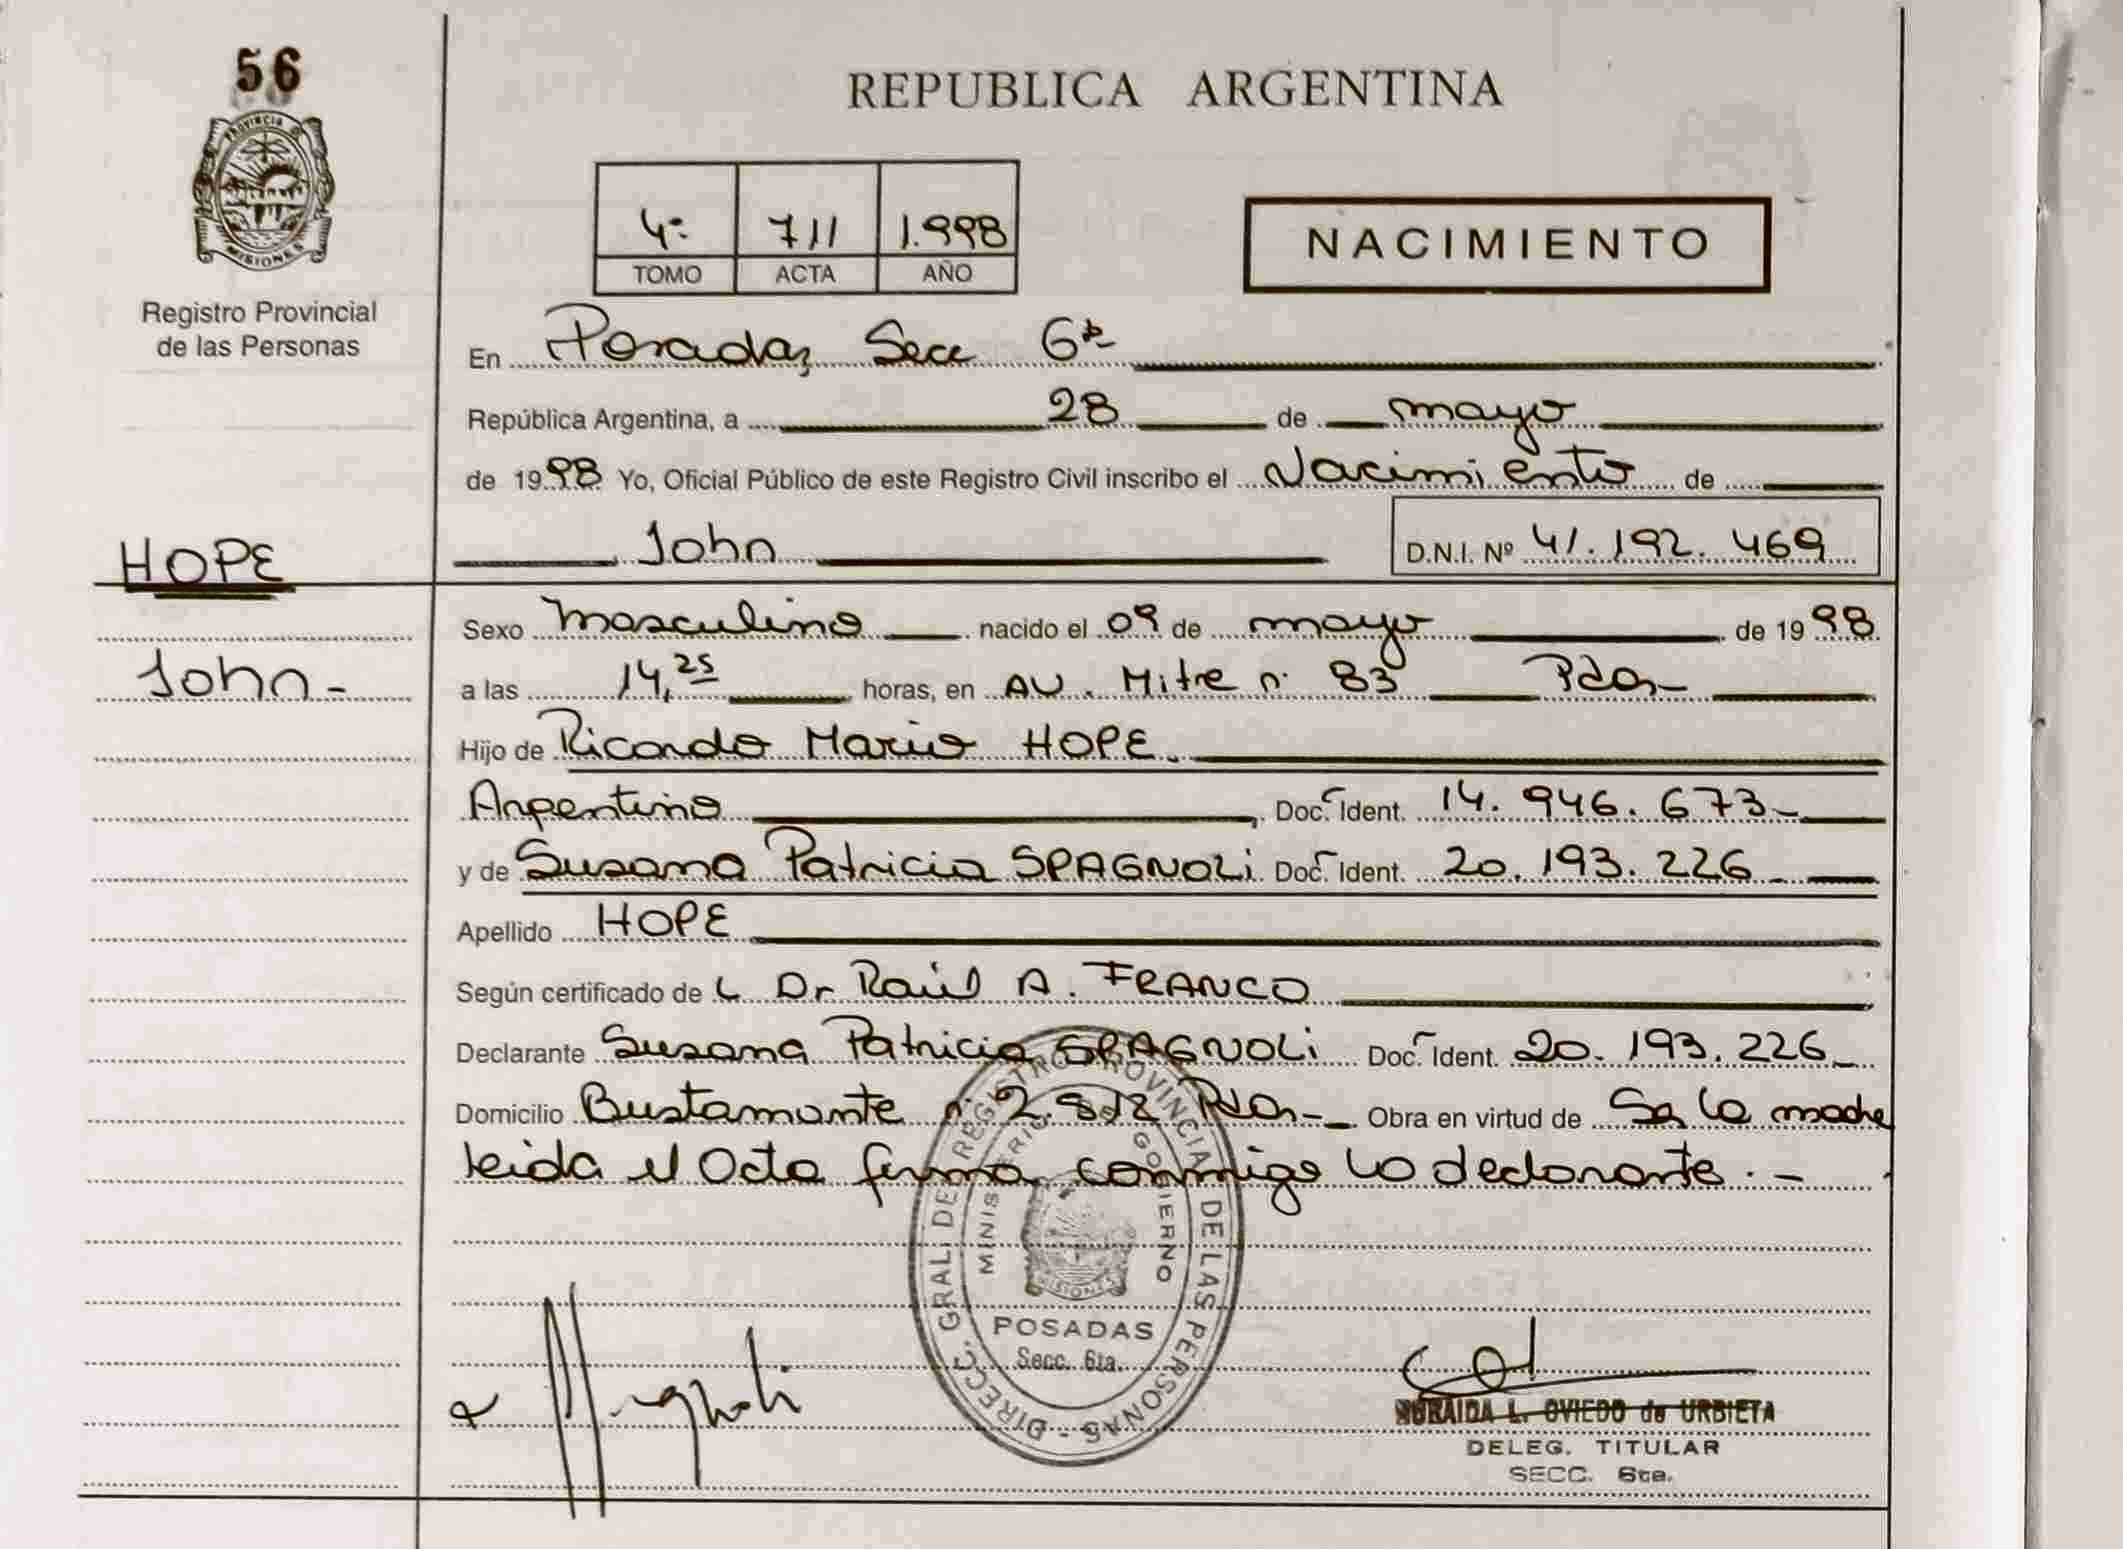 56
PROVINCIA DE
MISIONES
Registro Provincial
de las Personas
HOPE
John -
REPUBLICA ARGENTINA
4º 711 1.998
TOMO ACTA AÑO
NACIMIENTO
En Posadas, Secc 6ta
República Argentina, a 28 de mayo
de 1998 Yo, Oficial Público de este Registro Civil inscribo el Nacimiento de
John D.N.I. Nº 41.192.469
Sexo Masculino nacido el 09 de mayo de 1998
a las 14,25 horas, en AV. Mitre nº 83 Pdas
Hijo de Ricardo Mario HOPE.
Argentino, Doc. Ident. 14.946.673-
y de Susana Patricia SPAGNOLi Doc. Ident. 20.193.226-
Apellido HOPE
Según certificado de L Dr Raúl A. FRANCO
Declarante Susana Patricia SPAGNOLi Doc. Ident. 20.193.226-
Domicilio Bustamante nº 2.812 Pdas- Obra en virtud de Ser la madre
leida el Acta firma conmigo la declarante. -
DIRECC. GRAL. DEL REGISTRO PROVINCIAL DE LAS PERSONAS -
MINISTERIO GOBIERNO
MISIONES
POSADAS
Secc. 6ta.
L. OVIEDO de URBIETA
DELEG. TITULAR
SECC. 6ta.